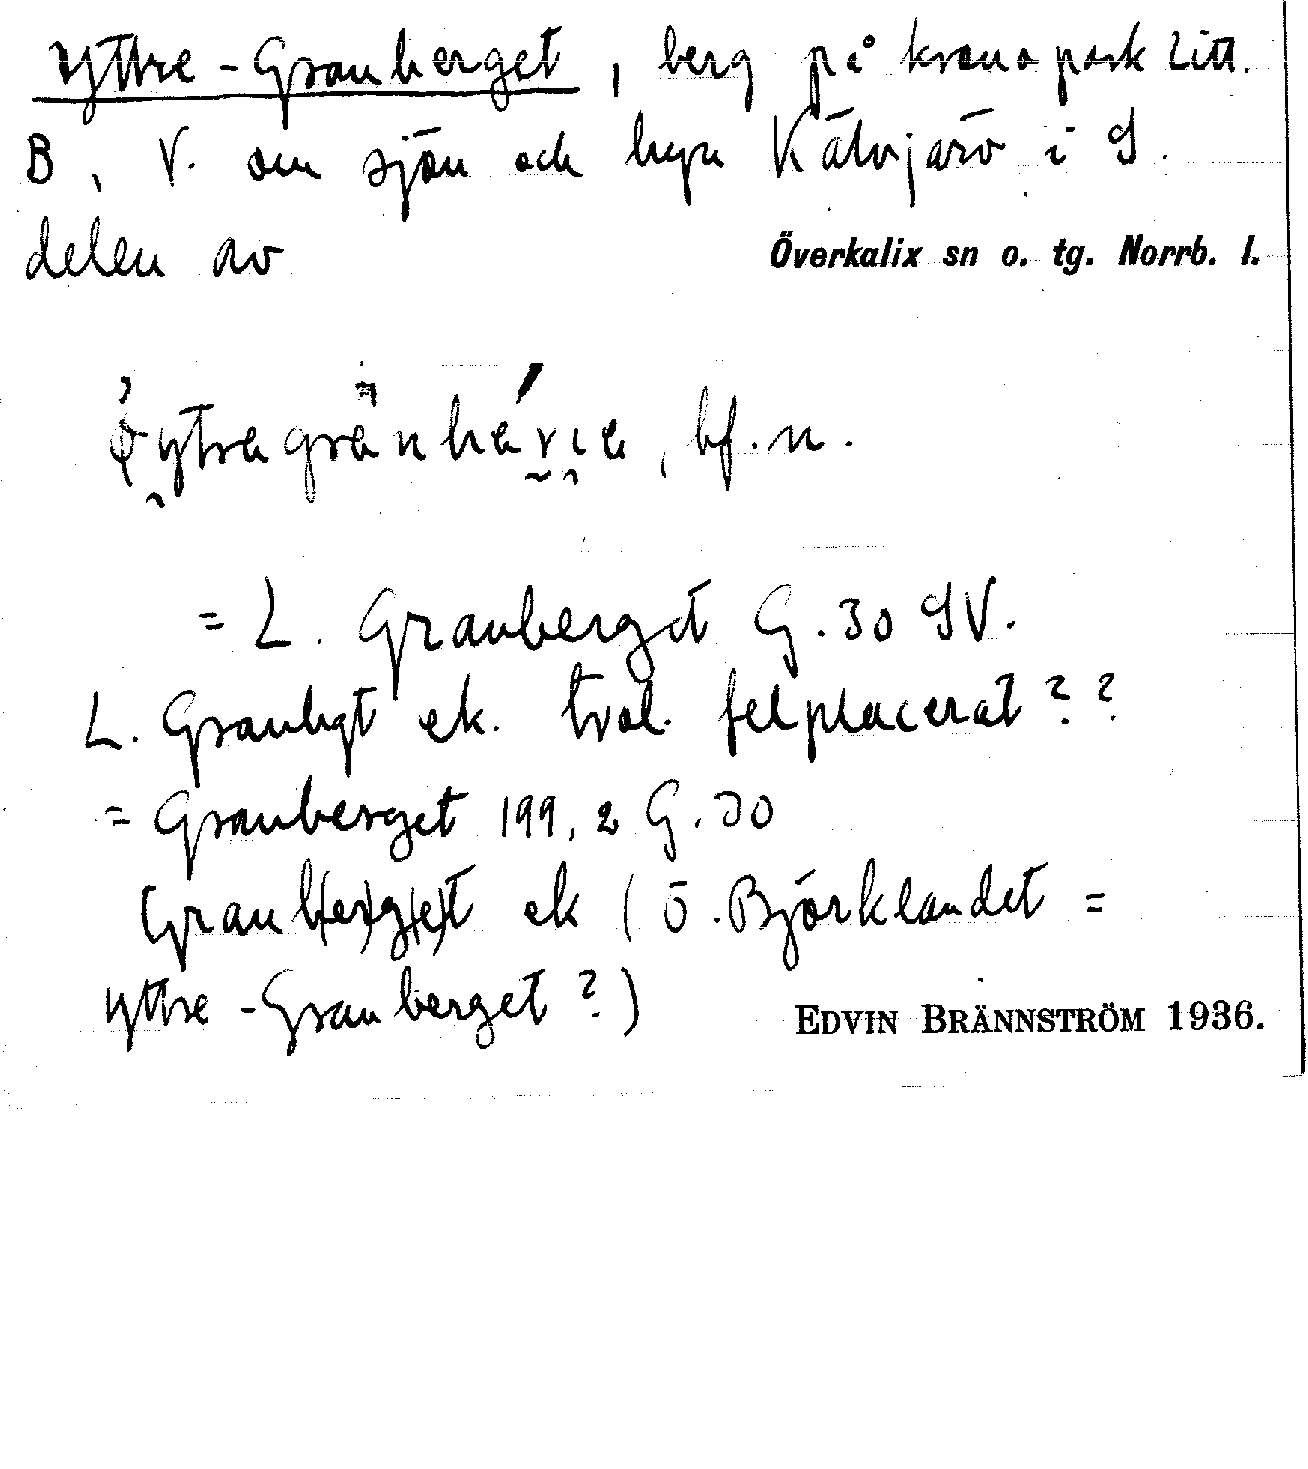 Yttre-Granberget, berg på kronopark Litt.
B, V. om sjön och byn Kälvjärv i S.
delen av Överkalix sn o. tg. Norrb. l.
, bf. n.
= L. Granberget G. 30 SV.
L. Granbgt ek. tvol. felplacerat ? ?
= Granberget 199,2 G. 30
Granb(er)g(e)t ek ( Ö. Björklandet =
Yttre-Granberget ?)
EDVIN BRÄNNSTRÖM 1936.